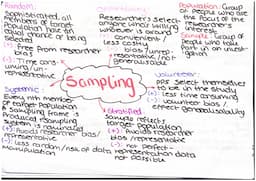 Random:
Sophisticated, all
members of target
population have an
equal chance of being
selected
(+) Free from researcher
bias
(-) Time cons-
uming/un-
representative
Researcher selects
anyone who is willing
whoever is around
(+) convenient/
less costly
(-) bias/unrep-
resentative/not
generalisable
Population: Group
of people who are
the focus of the
researcher's
interest
Sample: Group of
people who take
part in an invest-
igation
Sampling
Systemic:
Every nth member
of target population
A sampling frame is
produced. Sampling
system is nominated
(+) Avoids researcher bias/
representative
(-) less random/risk of data
manipulation
Stratified:
Sample reflects
target population
(+) Avoids researcher
bias/representative
(-) not perfect -
representation
not possible
Volunteer:
PPs select themselves
to be in the study
(+) less time consuming
(-) volunteer bias/
effect generalisability